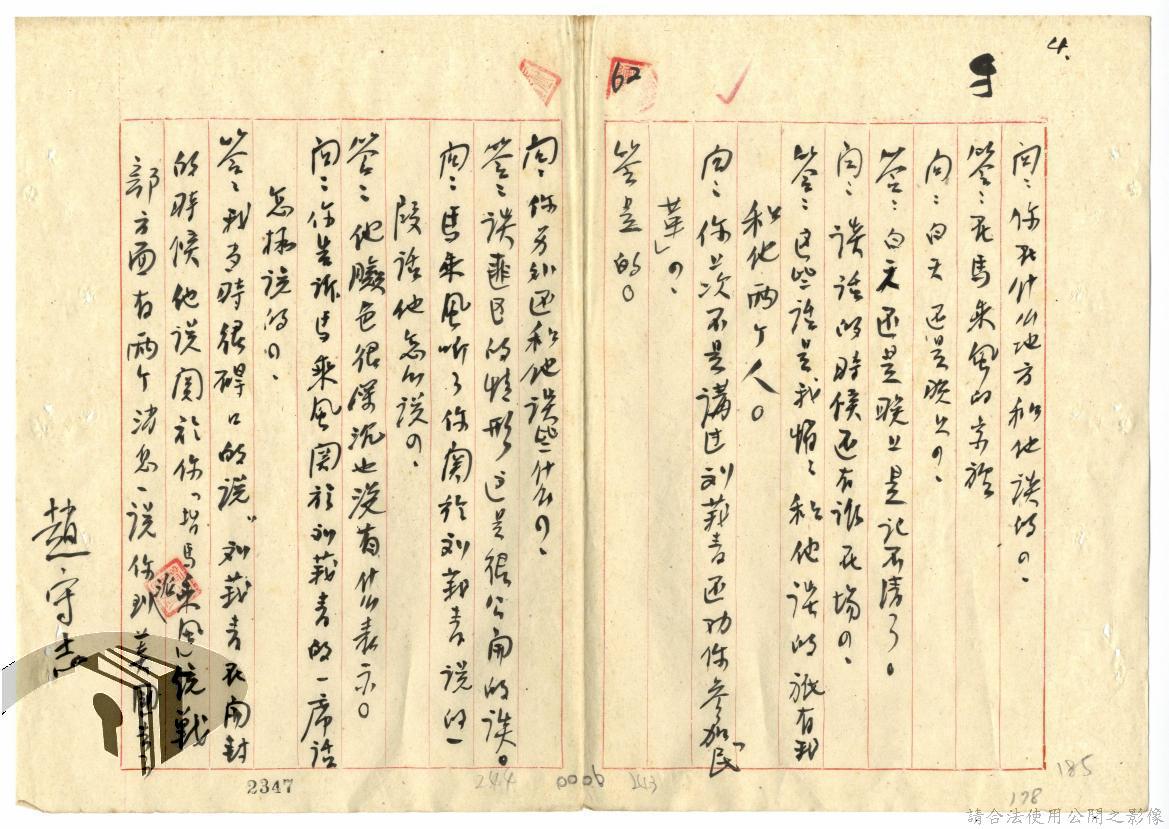 4.
62
問：你在什么地方和他談的？
答：在馬乘風的京旅
問：白天還是晚上？
答：白天還是晚上是記不清了。
問：談話的時候还有誰在場？
答：这些話是我悄悄和他談的祇有我
和他兩个人。
問：你上次不是講过刘莪青还劝你參加「民
革」？
答是的。
問：你另外还和他談些什么？
答：談匪区的情形这是很公開的談。
問：馬乘風听了你関於刘莪青說的一
段話他怎么說？
答：他臉色很深沉也沒有什么表示。
問：你告訴馬乘風関於刘莪青的一席話
怎樣說的？
答：我当時很碍口的說，刘莪青在開封
的時候他說関於你「指馬乘風」統戰
部方面有兩个消息一說你到美國
趙守志
2347
244
0006
243
185
178
請合法使用公開之影像